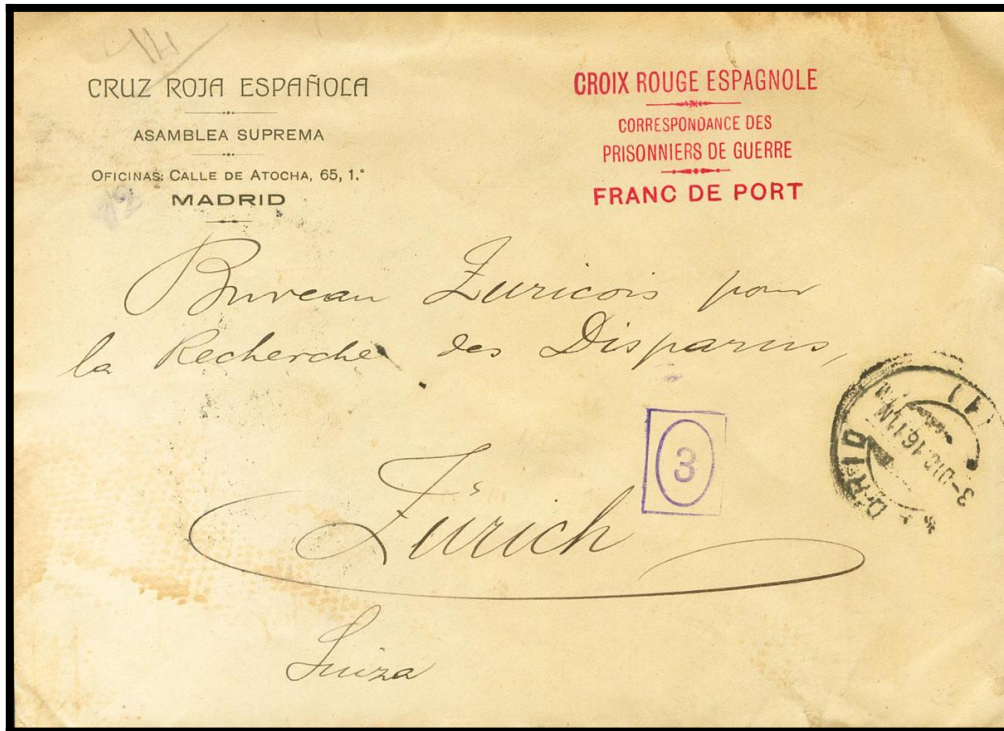 CRUZ ROJA ESPAÑOLA
ASAMBLEA SUPREMA
OFICINAS: CALLE DE ATOCHA, 65, 1.°
MADRID
CROIX ROUGE ESPAGNOLE
CORRESPONDANCE DES
PRISONNIERS DE GUERRE
FRANC DE PORT
Bureau Zuricois pour
la Recherche des Disparus,
Zürich
Suiza
3
3-DIC.16.11N